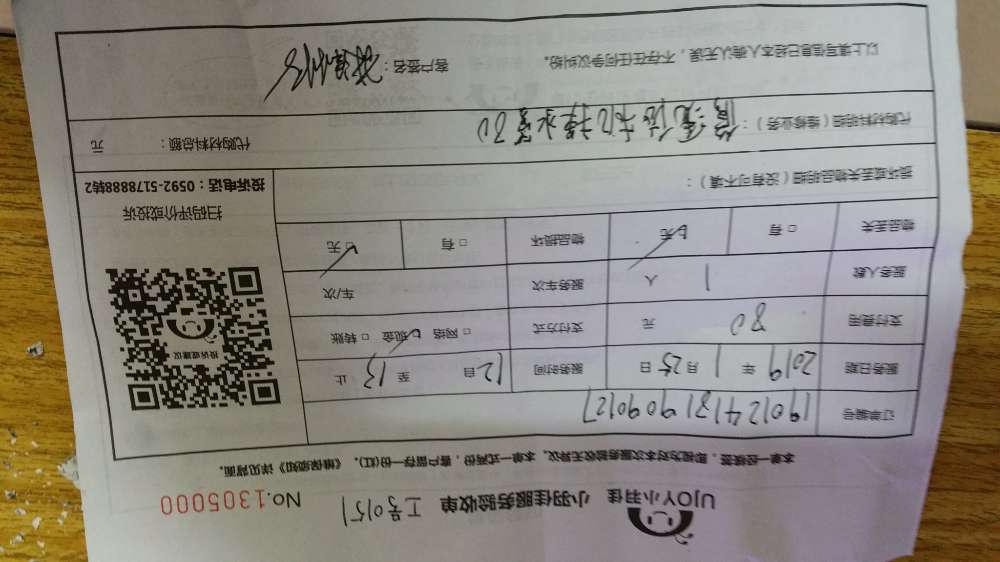 UJOY小羽佳 小羽佳服务验收单 工号0151 No.1305000
本单一经核签，即视为对本次服务验收无异议。本单一式两份，客户留存一份(红)。《维保须知》详见背面。
订单编号 1901241319090127
服务日期 2019 年 1 月 25 日 服务时间 12 自 至 13 止
支付费用 80 元 支付方式 □ 网络 □ 现金 □ 转账
服务人数 1 人 服务车次 车/次
物品丢失 □ 有 □ 无 物品损坏 □ 有 □ 无
投诉或建议
扫码评价或投诉
投诉电话：0592-5178888转2
损坏或丢失物品明细（没有可不填）：
代购材料明细（维修业务）： 洗衣机排水管80
代购材料总额： 元
以上填写信息已经本人确认无误，不存在任何争议纠纷。 客户签名：